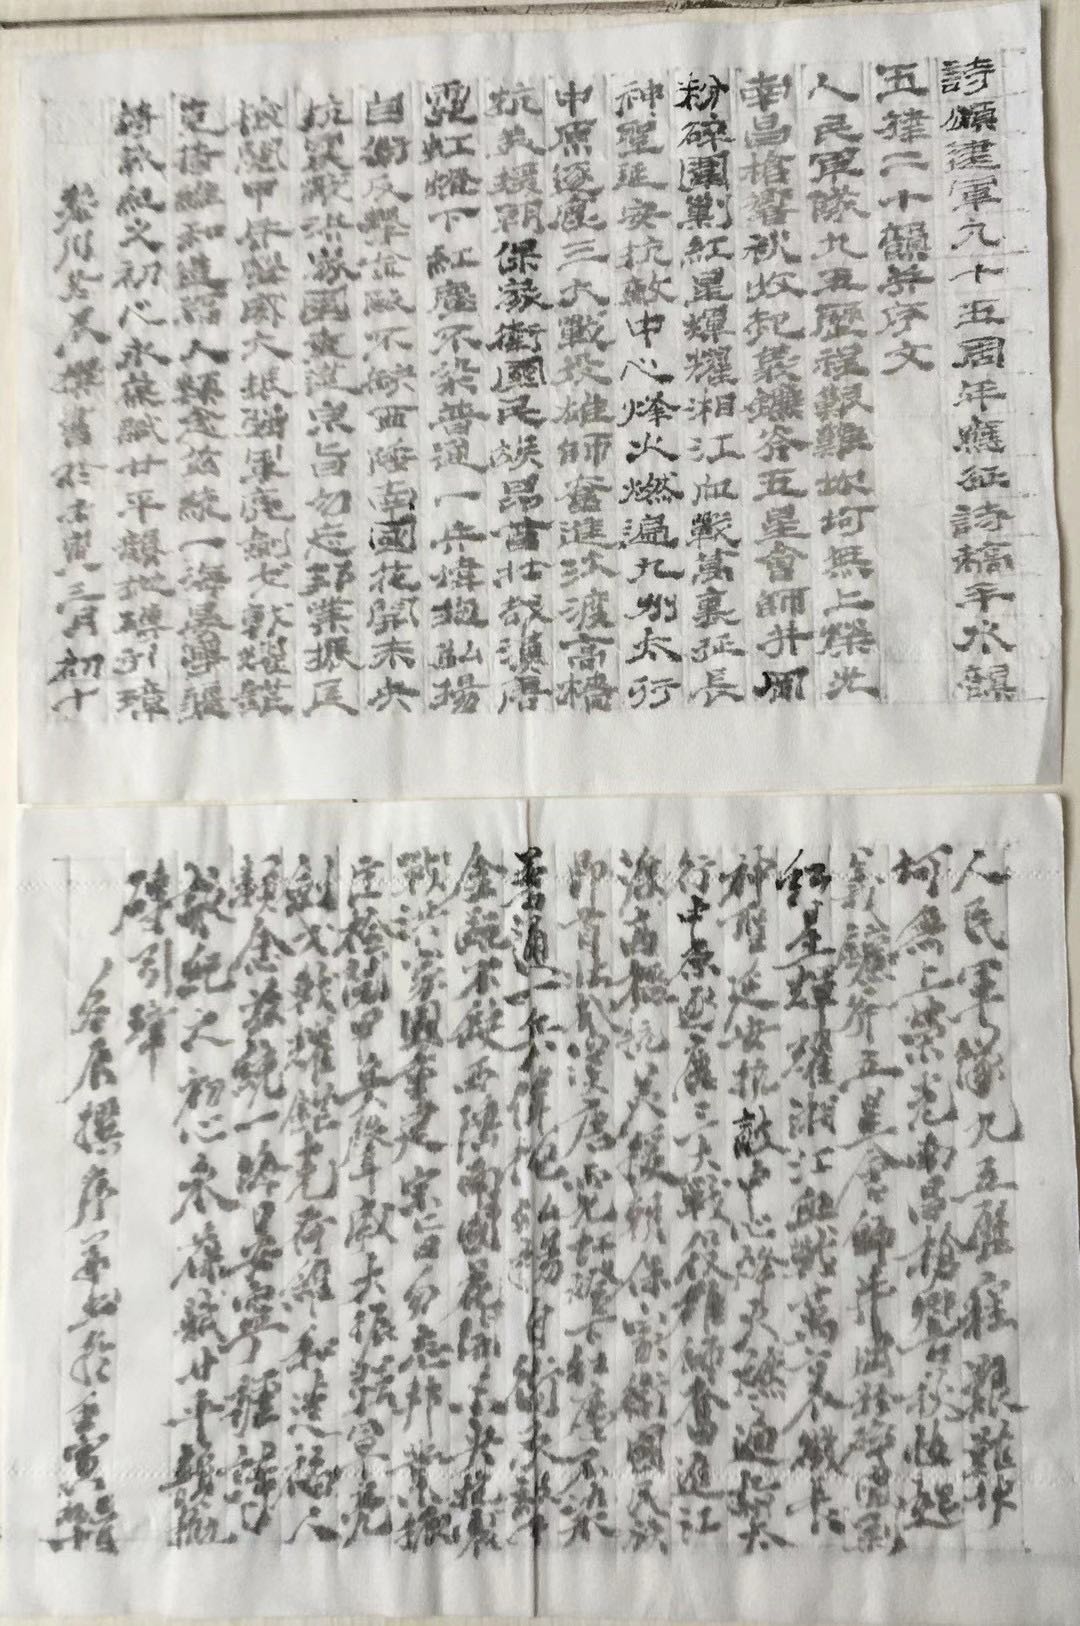 詩頌建軍九十五周年應征詩稿平水韻
五律二十韻并序文
人民軍隊九五歷程艱難坎坷無上榮光
南昌槍響秋收起義鐮斧五星會師井岡
粉碎圍剿紅星輝耀湘江血戰萬裏征長
神聖延安抗敵中心烽火燃遍九州太行
中原逐鹿三大戰役雄師奮進江渡高檣
抗美援朝保家衛國民族昂首壯哉漢唐
霓虹燈下紅塵不染普通一兵偉抱弘揚
自衛反擊金甌不缺西陲南國花開未央
抗震戰洪家國重望宗旨勿忘邦業振匡
檢閱甲兵 威大振強軍亮劍戈戟耀鋩
克荷維和造福人類念茲統一海晏寧疆
詩詠紀之初心永葆賦廿平韻拋磚引璋
撰書於壬寅三月初十
人民軍隊九五歷程艱難坎
坷無上榮光南昌槍響秋收起
義鐮斧五星會師井岡粉碎圍剿
紅星輝耀湘江血戰萬裏 長
神聖延安抗敵中心烽火燃遍九州太
行中原逐鹿三大戰役雄師奮進江
渡高檣抗美援朝保家衛國民族
昂首壯哉漢唐霓虹燈下紅塵不染
普通一兵偉抱弘揚自衛反擊
金甌不缺西陲南國花開未央抗震
戰洪家國重望宗旨勿忘邦業振
匡檢閱甲兵 威大振強軍亮
劍戈戟耀鋩克荷維和造福人
類念茲統一海晏寧疆詩
詠紀之初心永葆賦廿平韻拋
磚引璋
辰撰序并書於壬寅